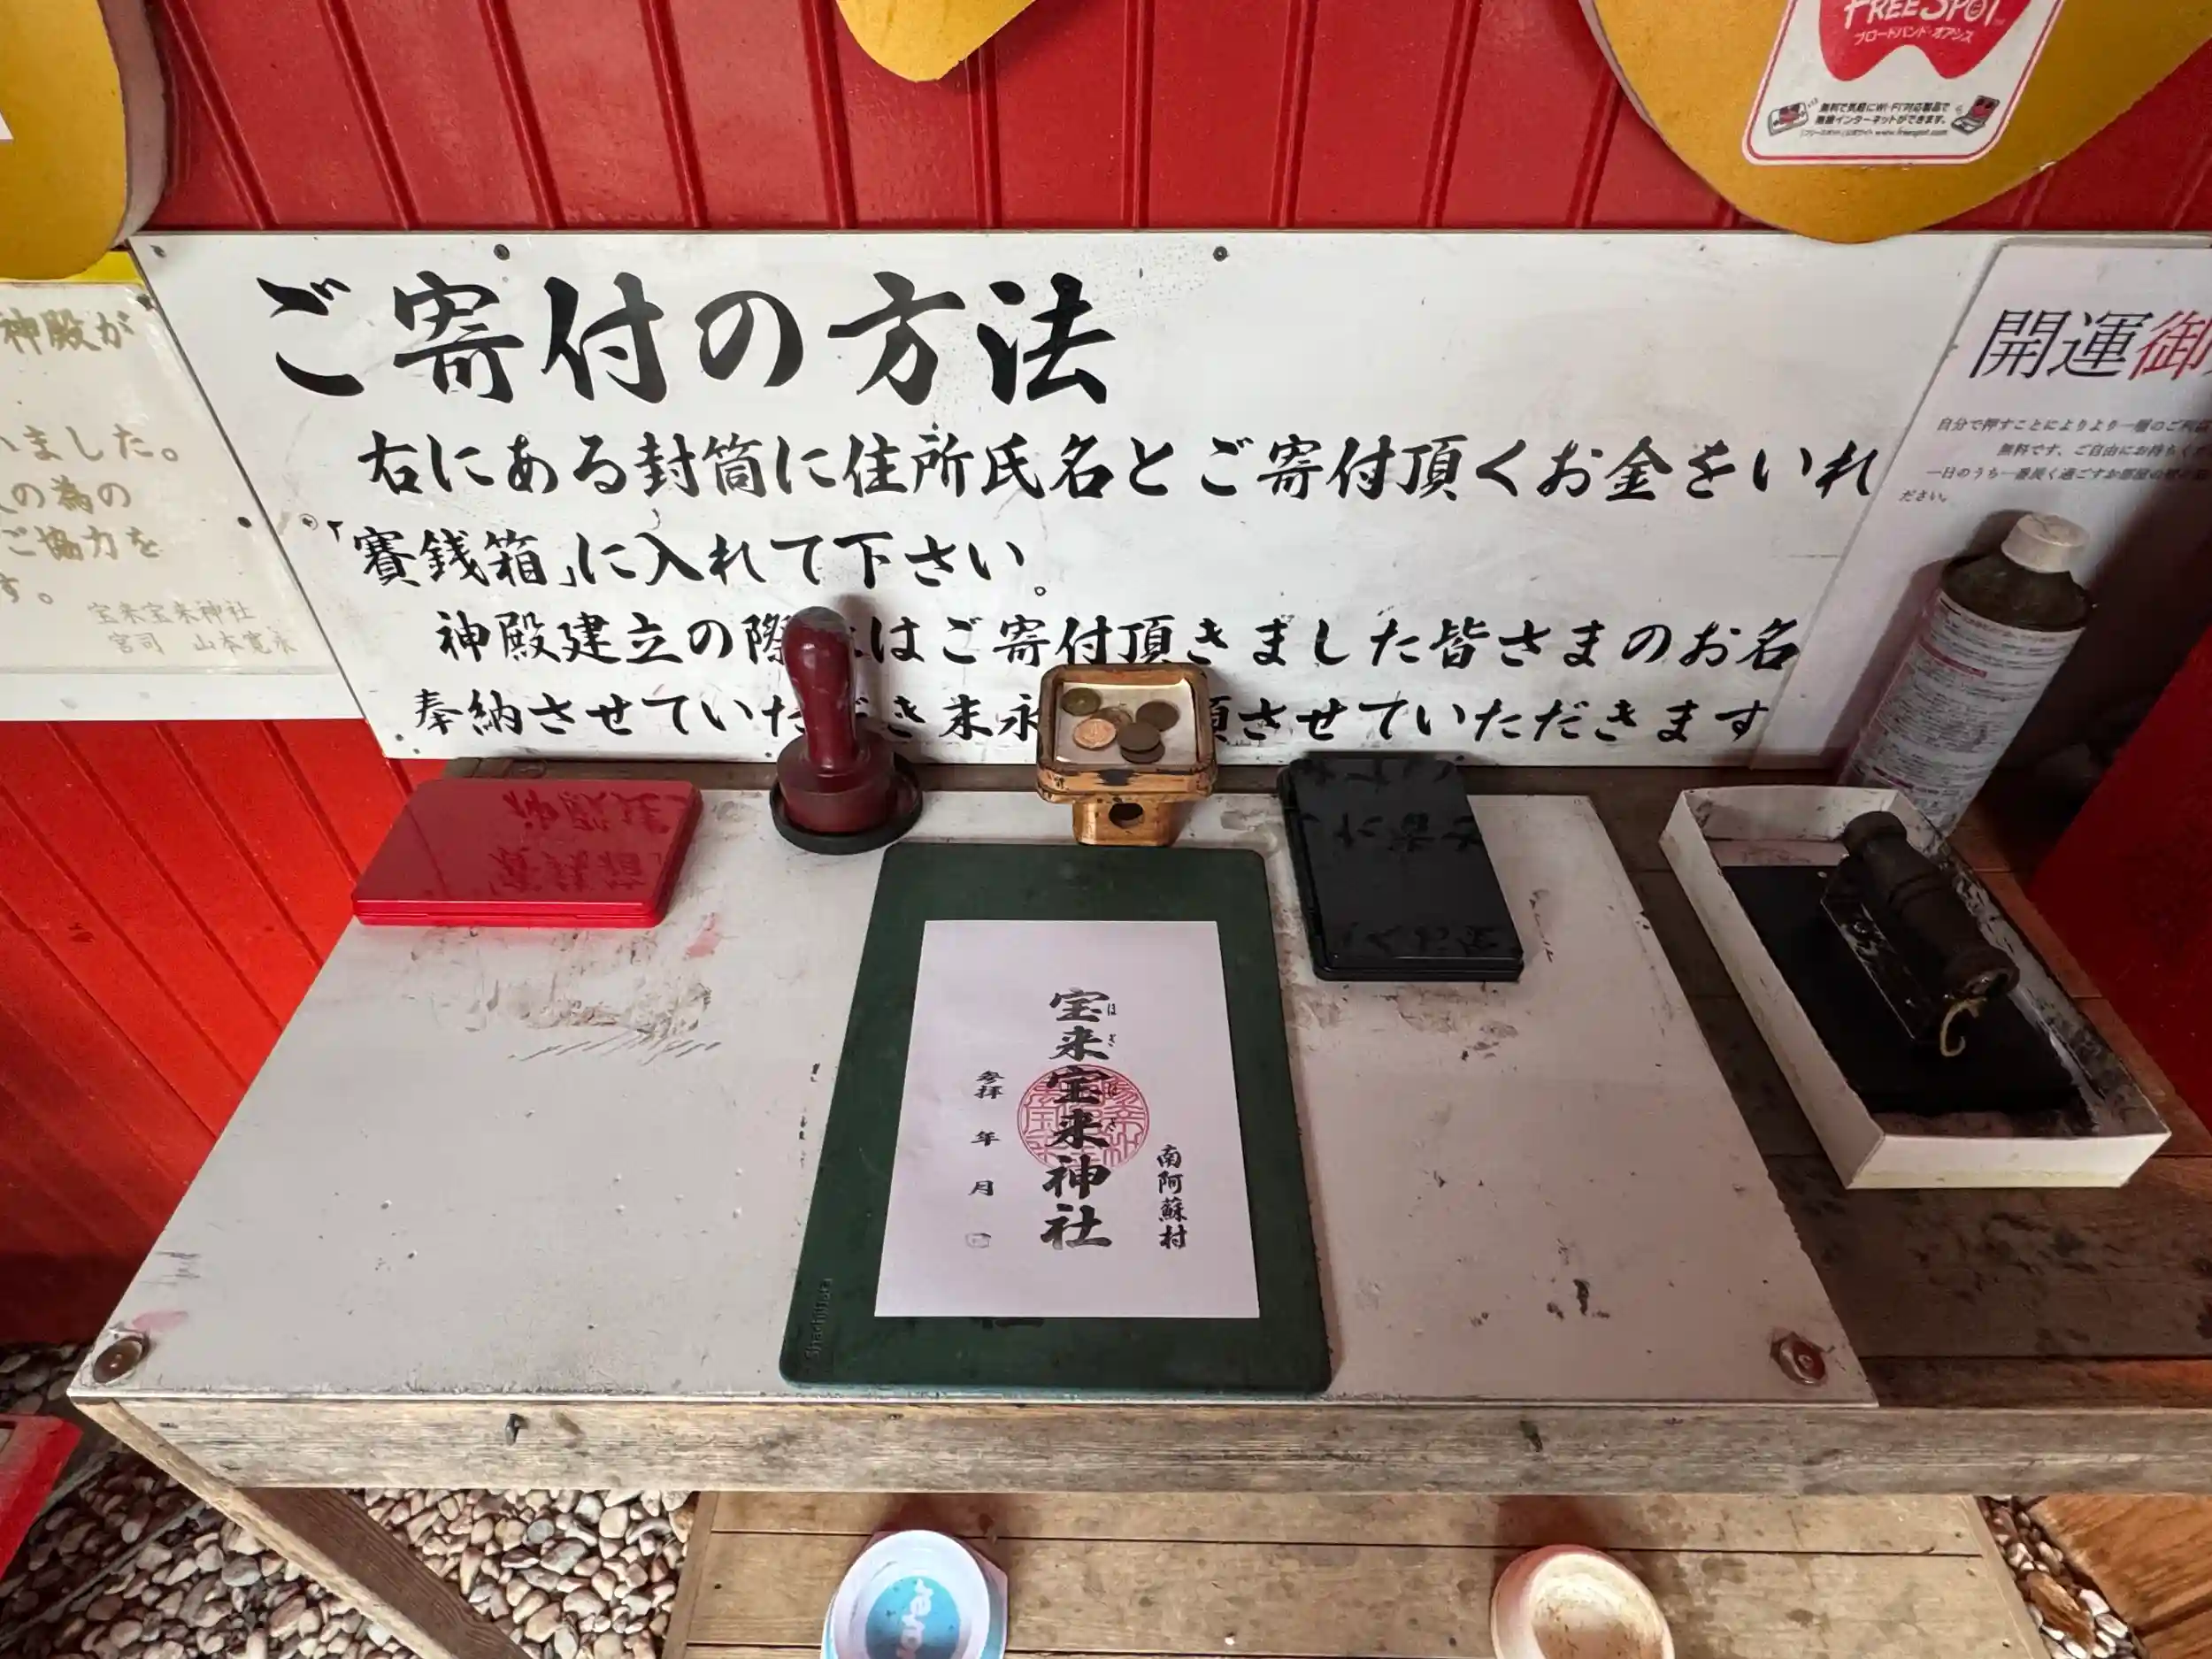 FREESPOT
ブロードバンド・オアシス
無料で気軽にWi-Fi対応製品で
無線インターネットができます。
www.freespot.com
ご寄付の方法
右にある封筒に住所氏名とご寄付頂くお金をいれ
「賽銭箱」に入れて下さい。
神殿建立の際にはご寄付頂きました皆さまのお名
奉納させていただき末永 させていただきます
神殿が
いました。
の為の
ご協力を
す。
宝来宝来神社
宮司 山本寛永
開運御
自分で押すことによりより一層のご利益
無料です、ご自由にお持ちくだ
一日のうち一番長く過ごすお部屋の
ださい。
南阿蘇村
宝来宝来神社
ほぎ ほぎ
参拝 年 月 日
Shachihata